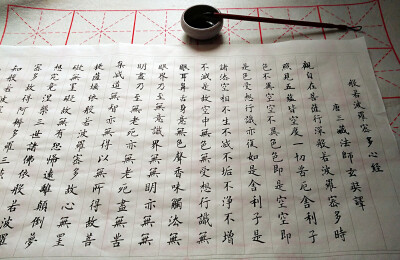 般若波羅蜜多心經
唐三藏法師玄奘譯
觀自在菩薩行深般若波羅蜜多時
照見五蘊皆空度一切苦厄舍利子
色不異空空不異色色即是空空即
是色受想行識亦復如是舍利子是
諸法空相不生不滅不垢不淨不增
不減是故空中無色無受想行識無
眼耳鼻舌身意無色聲香味觸法無
眼界乃至無意識界無無明亦無無
明盡乃至無老死亦無老死盡無苦
集滅道無智亦無得以無所得故菩
提薩埵依般若波羅蜜多故心無罣
礙無罣礙故無有恐怖遠離顛倒夢
想究竟涅槃三世諸佛依般若波羅
蜜多故得阿耨多羅三
知般若波羅